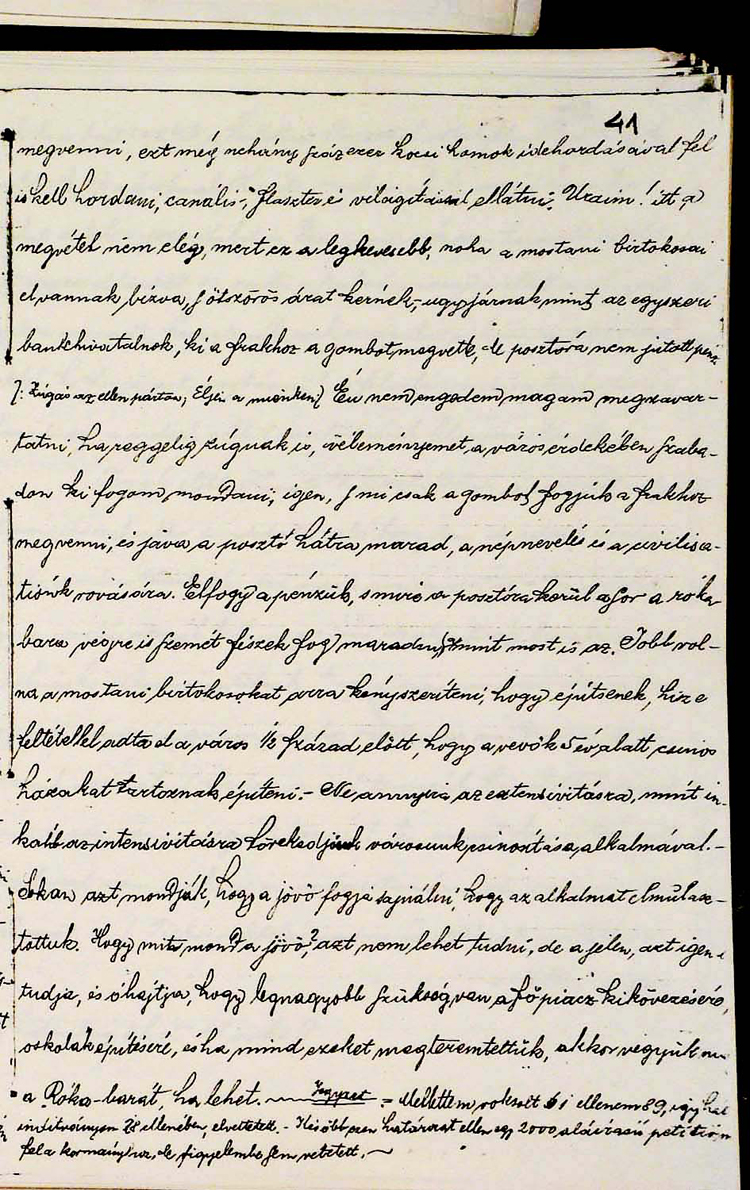 41
megvenni, ezt még néhány százezer kocsi homok idehordásával fel
is kell hordani, canális-, flaszter és világítással ellátni. Uraim! itt a
megvétel nem elég, mert ez a legkevesebb, noha a mostani birtokosai
el vannak bízva, s ötszörös árat kérnek, ugy járnak mint az egyszeri
bankhivatalnok, ki a frakhoz a gombot megvette, de posztóra nem jutott pénz
/: Zúgás az ellen párton, Éljen a mienken / Én nem engedem magam megzavar-
tatni, ha reggelig zúgnak is, véleményemet, a város érdekében szaba-
don ki fogom mondani, igen, s mi csak a gombot fogjuk a frakhoz
megvenni, és java a posztó hátra marad, a népnevelés és a civilisa-
tiónk rovására. Elfogy a pénzük, s mire a posztóra kerül a sor a róka
bara végre is szemét fészek fog maradni, mint most is az. Jobb vol-
na a mostani birtokosokat arra kényszeríteni, hogy építsenek, hisz e
feltétellel adta el a város ½ század előtt, hogy a vevők 5 év alatt csinos
házakat tartoznak építeni. - Ne annyira az extensivitásra, mint in-
kább az intensivitásra törekedjünk városunk csinosítása alkalmával. -
Sokan azt mondják, hogy a jövő fogja sajnálni, hogy az alkalmat elmulasz-
tottuk. Hogy mit mond a jövő? azt nem lehet tudni, de a jelen, azt igen
tudja, és óhajtja, hogy legnagyobb szükség van a főpiacz kikövezésére,
oskolák építésére, és ha mind ezeket megteremtettük, akkor vegyük
a Róka-barát, ha lehet. Jegyzet = Mellettem voksolt 61 ellenem 89, így hát
indítványom 28 ellenében, elvettetett. - Később ezen határozat ellen egy 2000 aláírású petítión
fel a kormányhoz, de figyelembe sem vétetett.